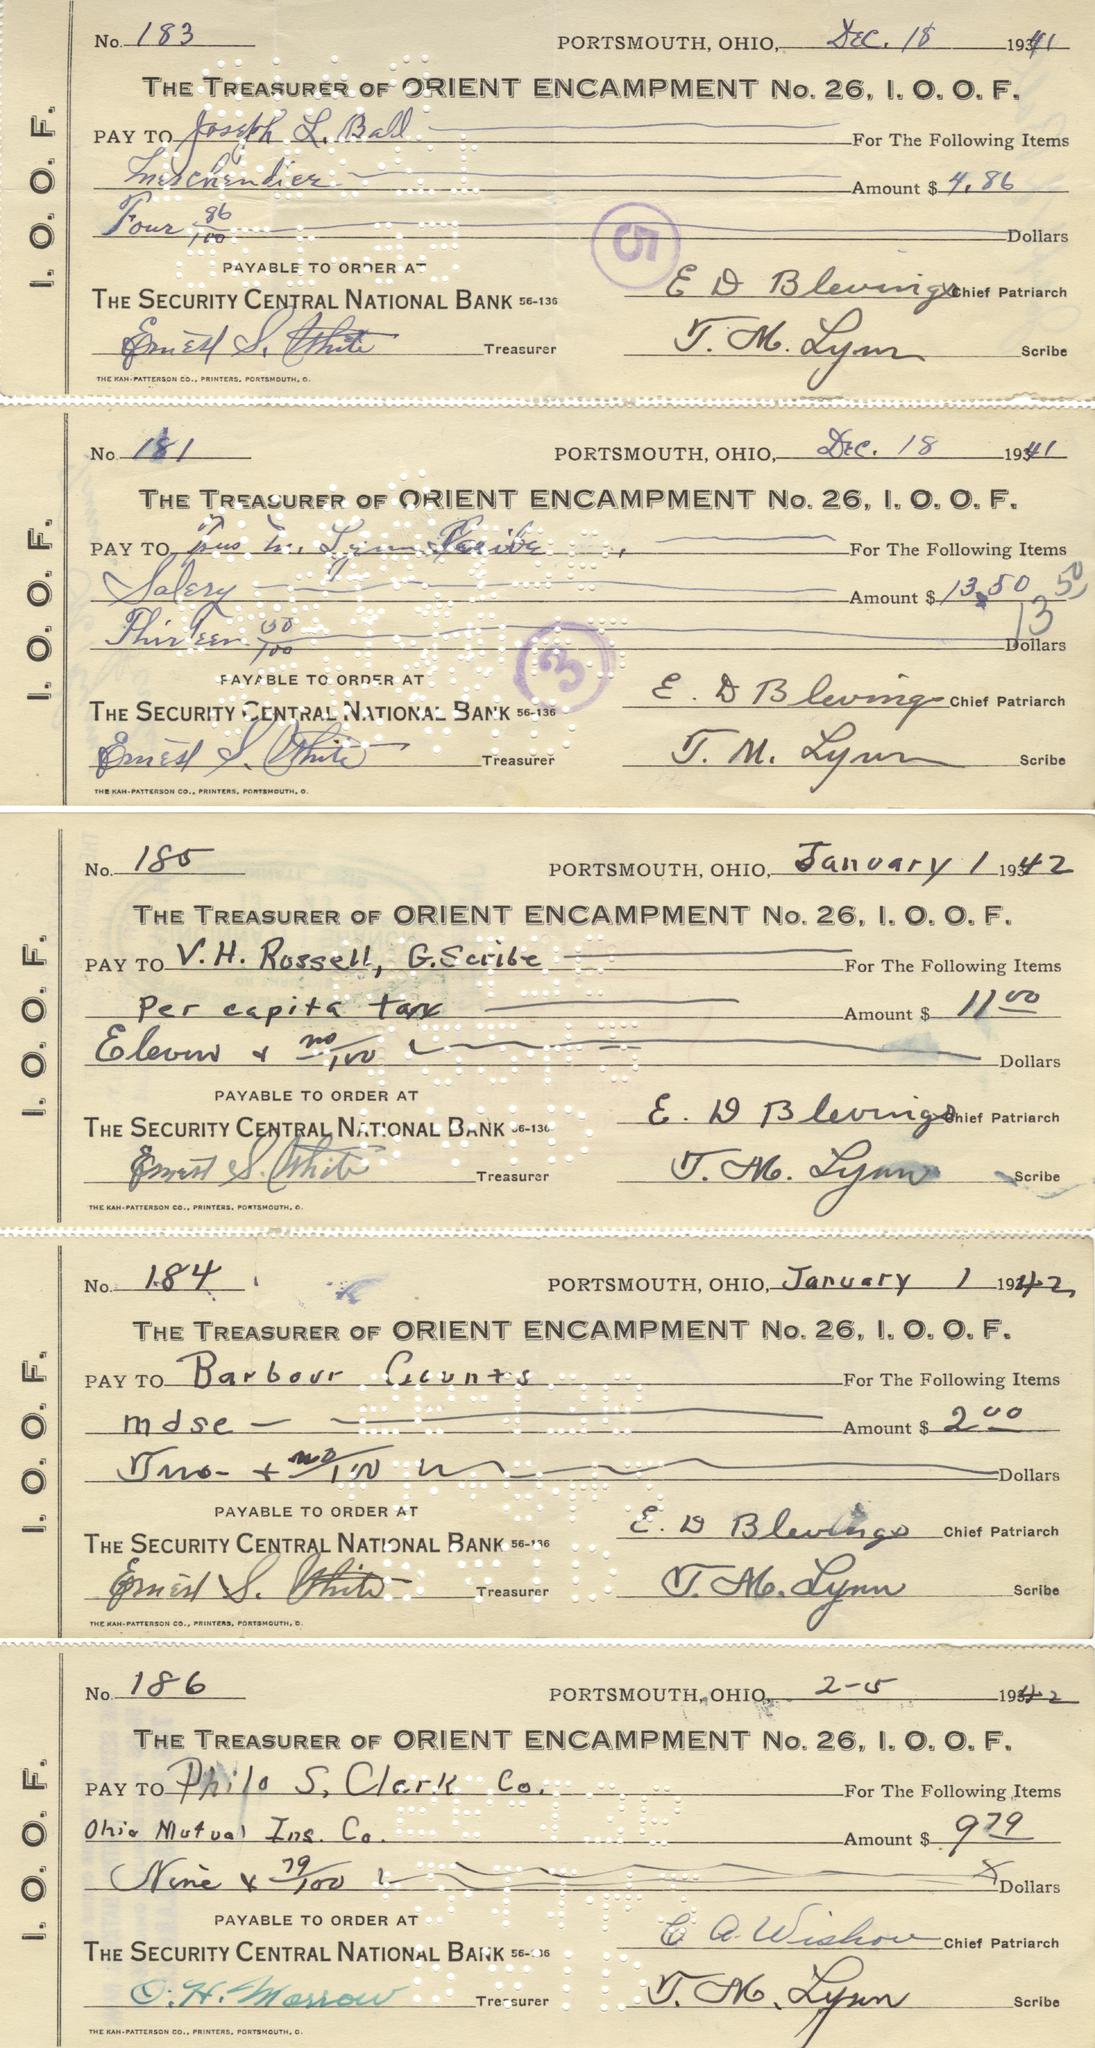 I. O. O. F.
No. 183 PORTSMOUTH, OHIO, Dec. 18 1941
THE TREASURER OF ORIENT ENCAMPMENT No. 26, I. O. O. F.
PAY TO Joseph L. Ball For The Following Items
Merchendice Amount $ 4.86
Four 86/100 Dollars
5
PAYABLE TO ORDER AT
THE SECURITY CENTRAL NATIONAL BANK 56-136 E D Blevings Chief Patriarch
Ernest S. White Treasurer T. M. Lynn Scribe
THE KAH-PATTERSON CO., PRINTERS, PORTSMOUTH, O.
I. O. O. F.
No. 181 PORTSMOUTH, OHIO, Dec. 18 1941
THE TREASURER OF ORIENT ENCAMPMENT No. 26, I. O. O. F.
PAY TO M. Lynn Scribe For The Following Items
Salery Amount $ 13.50 13 50
Thirteen 50/100 Dollars
3
PAYABLE TO ORDER AT
THE SECURITY CENTRAL NATIONAL BANK 56-136 E. D Blevings Chief Patriarch
Ernest S. White Treasurer T. M. Lynn Scribe
THE KAH-PATTERSON CO., PRINTERS, PORTSMOUTH, O.
I. O. O. F.
No. 185 PORTSMOUTH, OHIO, January 1 1942
THE TREASURER OF ORIENT ENCAMPMENT No. 26, I. O. O. F.
PAY TO V. H. Rossell, G. Scribe For The Following Items
Per capita tax Amount $ 11 00
Eleven & no/100 Dollars
PAYABLE TO ORDER AT
THE SECURITY CENTRAL NATIONAL BANK 56-136 E. D Blevings Chief Patriarch
Ernest S. White Treasurer T. M. Lynn Scribe
THE KAH-PATTERSON CO., PRINTERS, PORTSMOUTH, O.
I. O. O. F.
No. 184 PORTSMOUTH, OHIO, January 1 1942
THE TREASURER OF ORIENT ENCAMPMENT No. 26, I. O. O. F.
PAY TO Barbour For The Following Items
mdse Amount $ 2 00
Two & no/100 Dollars
PAYABLE TO ORDER AT
THE SECURITY CENTRAL NATIONAL BANK 56-136 E. D Blevings Chief Patriarch
Ernest S. White Treasurer T. M. Lynn Scribe
THE KAH-PATTERSON CO., PRINTERS, PORTSMOUTH, O.
I. O. O. F.
No. 186 PORTSMOUTH, OHIO, 2-5 1942
THE TREASURER OF ORIENT ENCAMPMENT No. 26, I. O. O. F.
PAY TO Philo S. Clark Co. For The Following Items
Ohio Mutual Ins. Co. Amount $ 9 79
Nine & 79/100 Dollars
PAYABLE TO ORDER AT
THE SECURITY CENTRAL NATIONAL BANK 56-136 C A. Wishon Chief Patriarch
O. H. Morrow Treasurer T. M. Lynn Scribe
THE KAH-PATTERSON CO., PRINTERS, PORTSMOUTH, O.